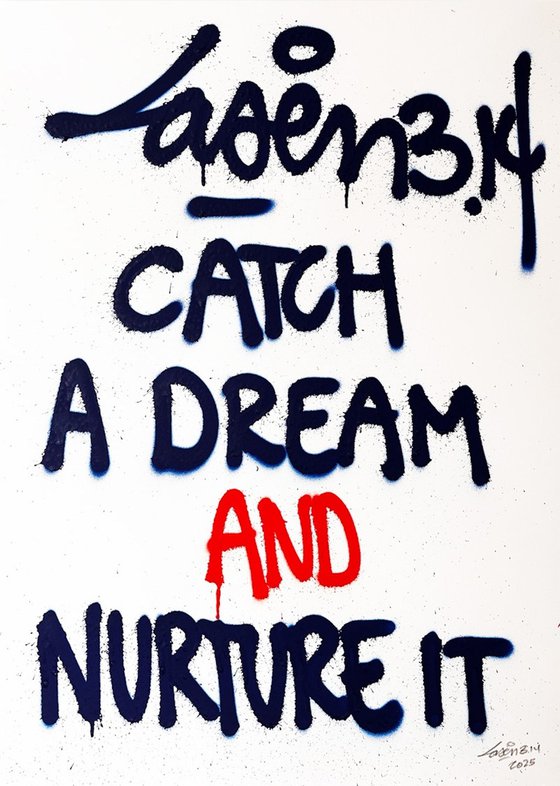 Laser3.14
CATCH
A DREAM
AND
NURTURE IT
Laser3.14
2025